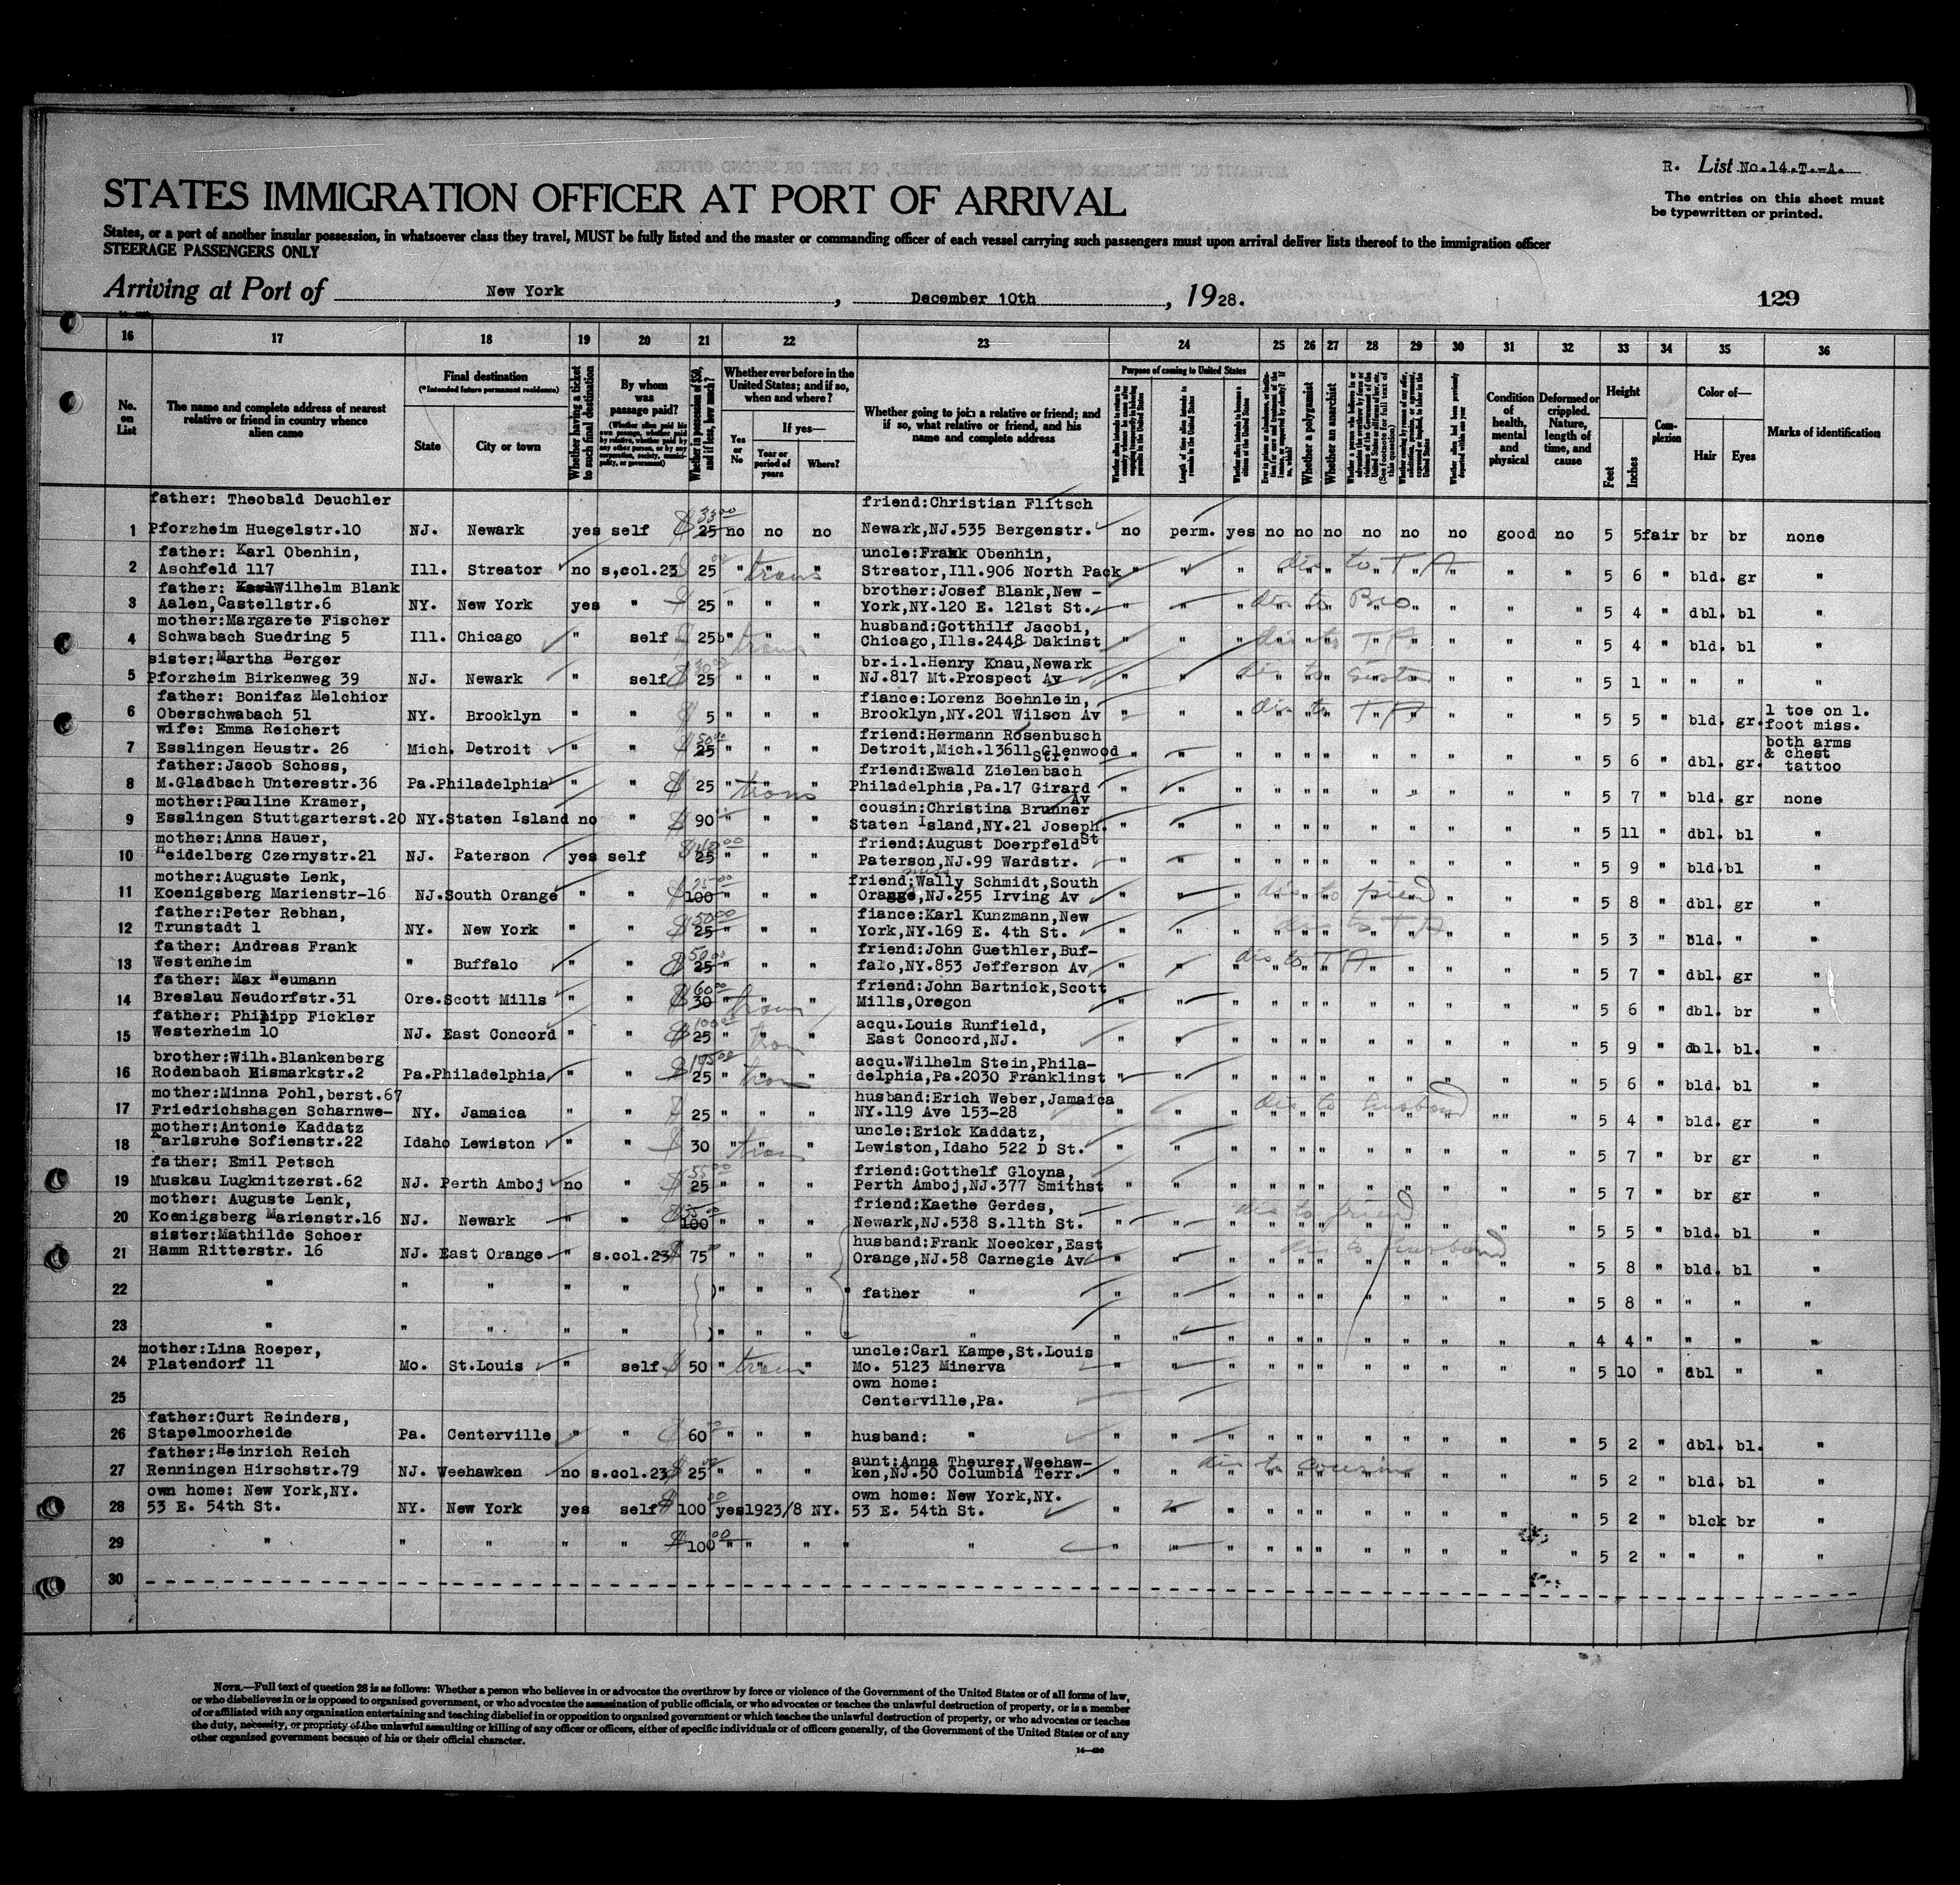 R. List No.14.T.-A.
STATES IMMIGRATION OFFICER AT PORT OF ARRIVAL
The entries on this sheet must
be typewritten or printed.
States, or a port of another insular possession, in whatsoever class they travel, MUST be fully listed and the master or commanding officer of each vessel carrying such passengers must upon arrival deliver lists thereof to the immigration officer
STEERAGE PASSENGERS ONLY
Arriving at Port of New York, December 10th, 1928.
129
16 17 18 19 20 21 22 23 24 25 26 27 28 29 30 31 32 33 34 35 36
No. on List
The name and complete address of nearest relative or friend in country whence alien came
Final destination
(*Intended future permanent residence)
State
City or town
Whether having a ticket to such final destination
By whom was passage paid?
Whether in possession of $50, and if less, how much?
Whether ever before in the United States; and if so, when and where?
Yes or No
If yes—
Year or period of years
Where?
Whether going to join a relative or friend; and if so, what relative or friend, and his name and complete address
Purpose of coming to United States
Whether a polygamist
Whether an anarchist
Condition of health, mental and physical
Deformed or crippled. Nature, length of time, and cause
Height
Feet
Inches
Complexion
Color of—
Hair
Eyes
Marks of identification
father: Theobald Deuchler friend:Christian Flitsch
1 Pforzheim Huegelstr.10 NJ. Newark yes self $ 33 00 25 no no no Newark,NJ.535 Bergenstr. no perm. yes no no no no no no good no 5 5 fair br br none
father: Karl Obenhin, uncle:Frank Obenhin,
2 Aschfeld 117 Ill. Streator no s,col.23 25 " " " trans Streator,Ill.906 North Pack " " " " " " " " " " " 5 6 " bld. gr "
dis to T A
father: Wilhelm Blank brother: Josef Blank,New -
3 Aalen,Castellstr.6 NY. New York yes " $ 25 " " " York,NY.120 E. 121st St. " " " " " " " " " " " 5 4 " dbl. bl "
mother:Margarete Fischer husband:Gotthilf Jacobi,
4 Schwabach Suedring 5 Ill. Chicago " self 25 " " " trans Chicago,Ills.2448 Dakinst " " " " " " " " " " " 5 4 " bld. bl "
dis to T A
sister:Martha Berger br.i.l.Henry Knau,Newark
5 Pforzheim Birkenweg 39 NJ. Newark " self 25 " " " NJ.817 Mt.Prospect Av " " " " " " " " " " " 5 1 " " " "
dis to sister
father: Bonifaz Melchior fiance:Lorenz Boehnlein,
6 Oberschwabach 51 NY. Brooklyn " " $ 5 " " " Brooklyn,NY.201 Wilson Av " " " " " " " " " " " 5 5 " bld. gr. 1 toe on l. foot miss.
dis to T A
wife: Emma Reichert friend:Hermann Rosenbusch
7 Esslingen Heustr. 26 Mich. Detroit " " 50 00 25 " " " Detroit,Mich.13611 Glenwood Str. " " " " " " " " " " " 5 6 " dbl. gr. both arms & chest tattoo
father:Jacob Schoss, friend:Ewald Zielenbach
8 M.Gladbach Unterestr.36 Pa.Philadelphia " " $ 25 " " " trans Philadelphia,Pa.17 Girard Av " " " " " " " " " " " 5 7 " bld. gr none
mother:Pauline Kramer, cousin:Christina Brunner
9 Esslingen Stuttgarterst.20 NY.Staten Island no " $ 90 " " " Staten Island,NY.21 Joseph. St " " " " " " " " " " " 5 11 " dbl. bl "
mother:Anna Hauer, friend:August Doerpfeld
10 Heidelberg Czernystr.21 NJ. Paterson yes self 25 " " " Paterson,NJ.99 Wardstr. " " " " " " " " " " " 5 9 " bld. bl "
mother:Auguste Lenk, friend:Wally Schmidt,South
11 Koenigsberg Marienstr-16 NJ.South Orange " " 100 " " " Orange,NJ.255 Irving Av " " " " " " " " " " " 5 8 " dbl. gr "
father:Peter Rebhan, fiance:Karl Kunzmann,New
12 Trunstadt 1 NY. New York " " $ 50 00 25 " " " York,NY.169 E. 4th St. " " " " " " " " " " " 5 3 " Bld. " "
dis to T A
father: Andreas Frank friend:John Guethler,Buf-
13 Westenheim " Buffalo " " $ 50 00 25 " " " falo,NY.853 Jefferson Av " " " " " " " " " " " 5 7 " dbl. gr "
dis to T A
father: Max Neumann friend:John Bartnick,Scott
14 Breslau Neudorfstr.31 Ore.Scott Mills " " $ 60 00 30 " " " trans Mills,Oregon " " " " " " " " " " " 5 6 " dbl. br "
father: Philipp Fickler acqu.Louis Runfield,
15 Westerheim 10 NJ. East Concord " " $ 100 00 25 " " " tran East Concord,NJ. " " " " " " " " " " " 5 9 " dbl. bl. "
brother:Wilh.Blankenberg acqu.Wilhelm Stein,Phila-
16 Rodenbach Bismarkstr.2 Pa.Philadelphia, " " $ 175 00 25 " " " tran delphia,Pa.2030 Franklinst " " " " " " " " " " " 5 6 " bld. bl "
mother:Minna Pohl,berst.67 husband:Erich Weber,Jamaica
17 Friedrichshagen Scharnwe- NY. Jamaica " " 25 " " " NY.119 Ave 153-28 " " " " " " " " " "" " 5 4 " bld. gr "
dis to husband
mother:Antonie Kaddatz uncle:Erick Kaddatz,
18 Karlsruhe Sofienstr.22 Idaho Lewiston " " $ 30 " " " trans Lewiston,Idaho 522 D St. " " " " " " " " " " " 5 7 " br gr "
father: Emil Petsch friend:Gotthelf Gloyna,
19 Muskau Lugknitzerst.62 NJ. Perth Amboj no " $ 55 00 25 " " " Perth Amboj,NJ.377 Smithst " " " " " " " " " " " 5 7 " br gr "
mother: Auguste Lenk, friend:Kaethe Gerdes,
20 Koenigsberg Marienstr.16 NJ. Newark " " 100 " " " Newark,NJ.538 S.11th St. " " " " " " " " " " " 5 5 " bld. bl "
dis to friend
sister:Mathilde Schoer husband:Frank Noecker,East
21 Hamm Ritterstr. 16 NJ. East Orange " s.col.23 $ 75 " " " Orange,NJ.58 Carnegie Av " " " " " " " " " " " 5 8 " bld. bl "
dis to husband
22 " " " " " " " " father " " " " " " " " " " " " " 5 8 " " " "
23 " " " " " " " " " " " " " " " " " " " " " 4 4 " " " "
mother:Lina Roeper, uncle:Carl Kampe,St.Louis
24 Platendorf 11 Mo. St.Louis " self $ 50 " " " trans Mo. 5123 Minerva " " " " " " " " " " " 5 10 " dbl " "
own home:
25 Centerville,Pa.
father:Curt Reinders,
26 Stapelmoorheide Pa. Centerville " " 60 " " " husband: " " " " " " " " " " " " 5 2 " dbl. bl. "
father:Heinrich Reich aunt:Anna Theurer,Weehaw-
27 Renningen Hirschstr.79 NJ. Weehawken no s.col.23 $ 25 " " " ken,NJ.50 Columbia Terr. " " " " " " " " " " " 5 2 " bld. bl "
dis to cousin
own home: New York,NY. own home: New York,NY.
28 53 E. 54th St. NY. New York yes self $ 100 00 yes 1923/8 NY. 53 E. 54th St. " " " " " " " " " " " 5 2 " blck br "
29 " " " " " $ 100 00 " " " " " " " " " " " " " " " " 5 2 " " " "
30
NOTE.—Full text of question 28 is as follows: Whether a person who believes in or advocates the overthrow by force or violence of the Government of the United States or of all forms of law,
or who disbelieves in or is opposed to organized government, or who advocates the assassination of public officials, or who advocates or teaches the unlawful destruction of property, or is a member
of or affiliated with any organization entertaining and teaching disbelief in or opposition to organized government or which teaches the unlawful destruction of property, or who advocates or teaches
the duty, necessity, or propriety of the unlawful assaulting or killing of any officer or officers, either of specific individuals or of officers generally, of the Government of the United States or of any
other organized government because of his or their official character.